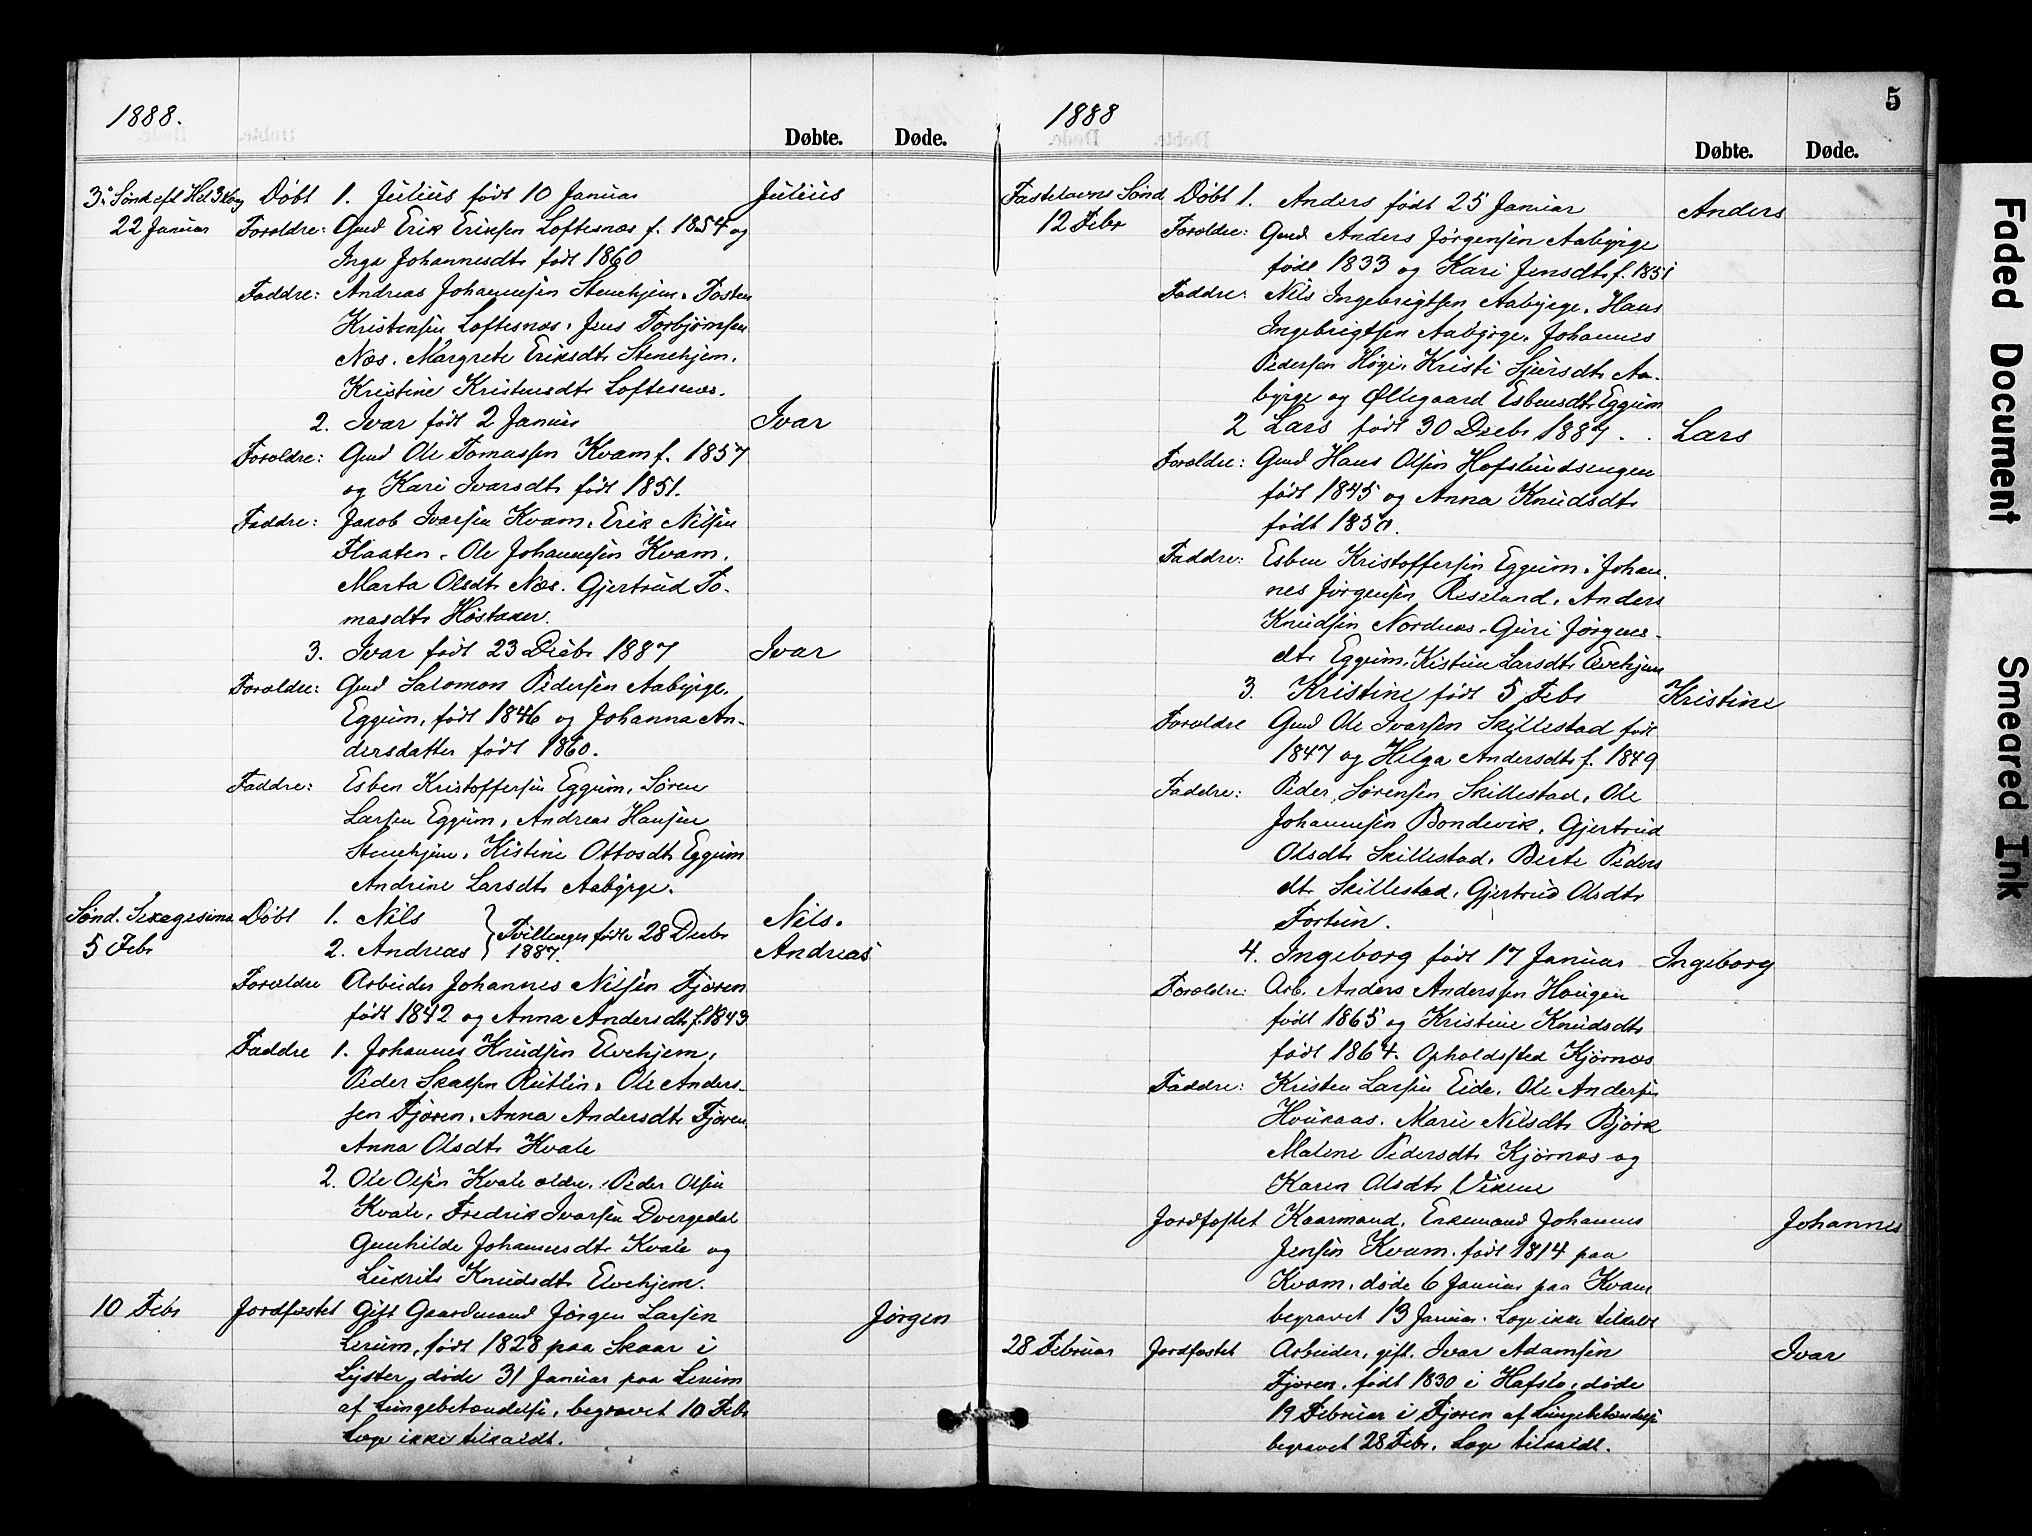 1888.
Døbte. Døde.
3. Sønd eft Hel 3 Kong Døbt 1. Julius født 10 Januar Julius
22 Januar Forældre: Gmd Erik Eriksen Loftesnæs f. 1854 og
Inga Johannesdtr født 1860
Faddre: Andreas Johannesen Stenehjem. Tosten
Kristensen Loftesnæs. Jens Torbjørnsen
Næs. Margrete Eriksdtr Stenehjem.
Kristine Kristensdtr Loftesnæs.
2. Ivar født 2 Januar Ivar
Forældre: Gmd Ole Tomassen Kvam f. 1857
og Kari Ivarsdtr født 1851.
Faddre: Jakob Ivarsen Kvam. Erik Nilsen
Flaaten. Ole Johannesen Kvam.
Marta Olsdtr Næs. Gjertrud To-
masdtr Høstaker.
3. Ivar født 23 Decbr 1887 Ivar
Forældre: Gmd Salomon Pedersen Aabyrge.
Eggum, født 1846 og Johanna An-
dersdatter født 1860.
Faddre: Esben Kristoffersen Eggum. Søren
Larsen Eggum, Andreas Hansen
Stenehjem. Kistine Ottosdtr Eggum
Andrine Larsdtr Aabyrge.
Sønd. Sexagesima Døbt 1. Nils Nils.
Tvillinger fødte 28 Decbr
5 Febr 2. Andreas 1887. Andreas
Forældre Arbeider Johannes Nilsen Fjæren
født 1842 og Anna Andersdtr f. 1843
Faddre 1. Johannes Knudsen Elvehjem,
Peder Skassen Rutlin. Ole Anders-
sen Fjæren. Anna Andersdtr Fjæren
Anna Olsdtr Kvale
2. Ole Olsen Kvale ældre. Peder Olsen
Kvale. Fredrik Ivarsen Dvergedal
Gunhilde Johannesdtr Kvale og
Lukrits Knudsdtr Elvehjem.
10 Febr Jordfæstet Gift Gaardmand Jørgen Larsen Jørgen
Lerum, født 1828 paa Skaar i
Lyster, døde 31 Januar paa Lerum
af Lungebetændelse, begravet 10 Febr
Læge ikke tilkaldt.
1888
5
Døbte. Døde.
Fastelavns Sønd Døbt 1. Anders født 25 Januar Anders
12 Febr Forældre: Gmd Anders Jørgensen Aabyrge
født 1833 og Kari Jensdtr f. 1851
Faddre: Nils Ingebrigtsen Aabyrge. Hans
Ingebrigtsen Aabyrge. Johannes
Pedersen Høgi. Kristi Sjursdtr Aa-
byrge og Øllegaard Esbensdtr Eggum
2 Lars født 30 Decbr 1887. Lars
Forældre: Gmd Hans Olsen Hofslundsengen
født 1845 og Anna Knudsdtr
født 1850.
Faddre: Esben Kristoffersen Eggum. Johan-
nes Jørgensen Riseland. Anders
Knudsen Nordnæs. Guri Jørgens-
dtr Eggum. Kistine Larsdtr Elvehjem
3. Kristine født 5 Febr Kristine
Forældre Gmd Ole Ivarsen Skillestad født
1847 og Helga Andersdtr f. 1849
Faddre: Peder Sørensen Skillestad. Ole
Johannesen Bondevik. Gjertrud
Olsdtr Skillestad. Berte Peders
dtr Skillestad. Gjertrud Olsdtr
Fortun.
4. Ingeborg født 17 Januar Ingeborg
Forældre: Arb. Anders Anderssen Haugen
født 1865 og Kristine Knudsdtr
født 1864. Opholdssted Kjørnæs
Faddre: Kristen Larsen Eide. Ole Andersen
Hvukaas. Marie Nilsdtr Bjørk
Malene Pedersdtr Kjørnæs og
Karen Olsdtr Vikene
Jordfæstet Kaarmand. Enkemand Johannes Johannes
Jensen Kvam. født 1814 paa
Kvam. døde 6 Januar paa Kvam
begravet 13 Januar. Læge ikke tilkaldt
28 Februar Jordfæstet Arbeider, gift. Ivar Adamsen Ivar
Fjæren. født 1830 i Hafslo. døde
19 Februar i Fjæren af Lungebetændelse
begravet 28 Febr. Læge tilkaldt.
Faded Document
Smeared Ink